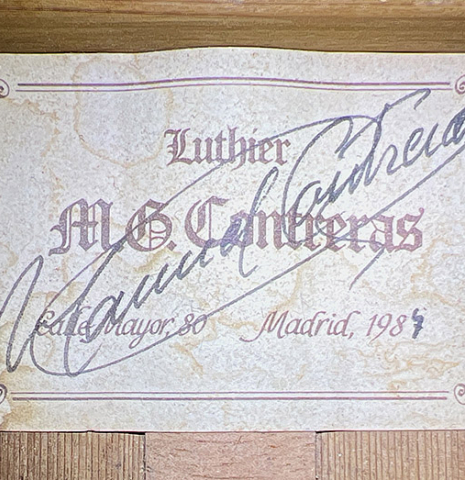 Luthier
M. G. Contreras
Manuel Contreras
Calle Mayor, 80 Madrid, 1984